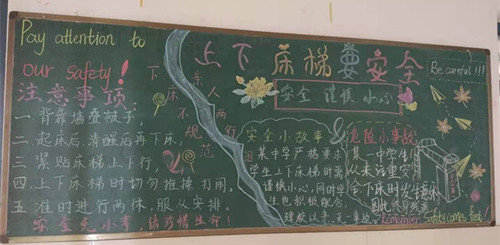 Pay attention to
our safety!
上下床梯要安全
Be careful!!!
安全 谨慎 小心
注意事项
一 背靠墙叠被子,
二 起床后,清醒后再下床,
三 紧贴床梯上下行,
四 上下床梯时切勿推搡打闹,
五 准时进行两休,服从安排。
安全无小事
生命!
下床不规范
亲人两行
安全小故事
某中学严格要求
学生上下床梯时
谨慎小心,同时学
生也积极配合,
危险小事故
某一中学生
从未论重安
全下床时发生意外
因此终身残疾
Remember Safety comes first